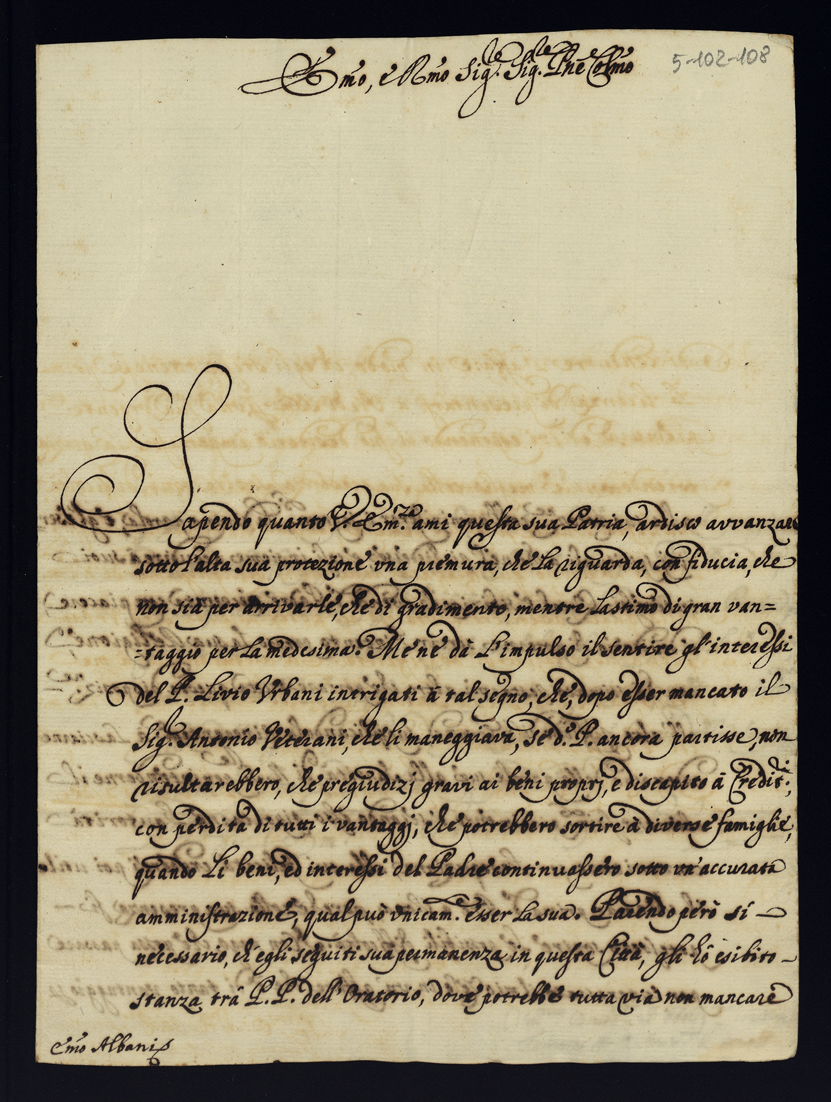 Emo, e Rmo Sig.re Sig.re Pne Colmo
5-102-108
Sapendo quanto V. Em.za ami questa sua Patria, ardisco avvanzare
sotto l'alta sua protezione vna premura, che la riguarda, con fiducia, che
non sia per arrivarle, che di gradimento, mentre lastimo di gran van=
=taggio per la medesima. Me ne dà l'impulso il sentire gl'interessi
del P. Livio Vrbani intrigati à tal segno, che, dopo esser mancato il
Sig. Antonio Veterani, che li maneggiava, se d.o P. ancora partisse, non
risultarebbero, che pregiudizj gravi ai beni proprj, e discapito à Credit.ri,
con perdita di tutti i vantaggj, che potrebbero sortire à diverse famiglie,
quando li beni, ed interessi del Padre continuassero sotto vn'accurata
amministrazione, qual può vnicam.e esser la sua. Parendo però sì
necessario, ch'egli seguiti sua permanenza in questa Città, gli hò esibito
stanza trà P.P. dell'Oratorio, dove potrebbe tutta via non mancare
Emo Albani